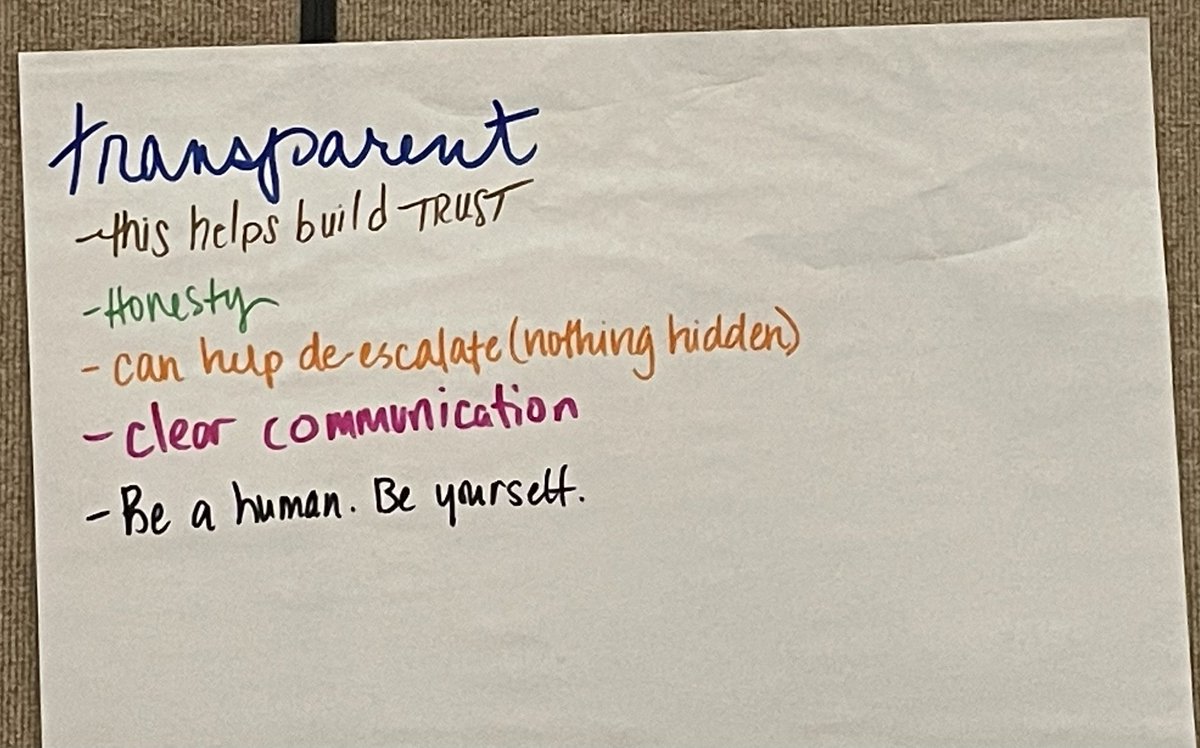 transparent
- this helps build TRUST
- Honesty
- can help de-escalate (nothing hidden)
- clear communication
- Be a human. Be yourself.